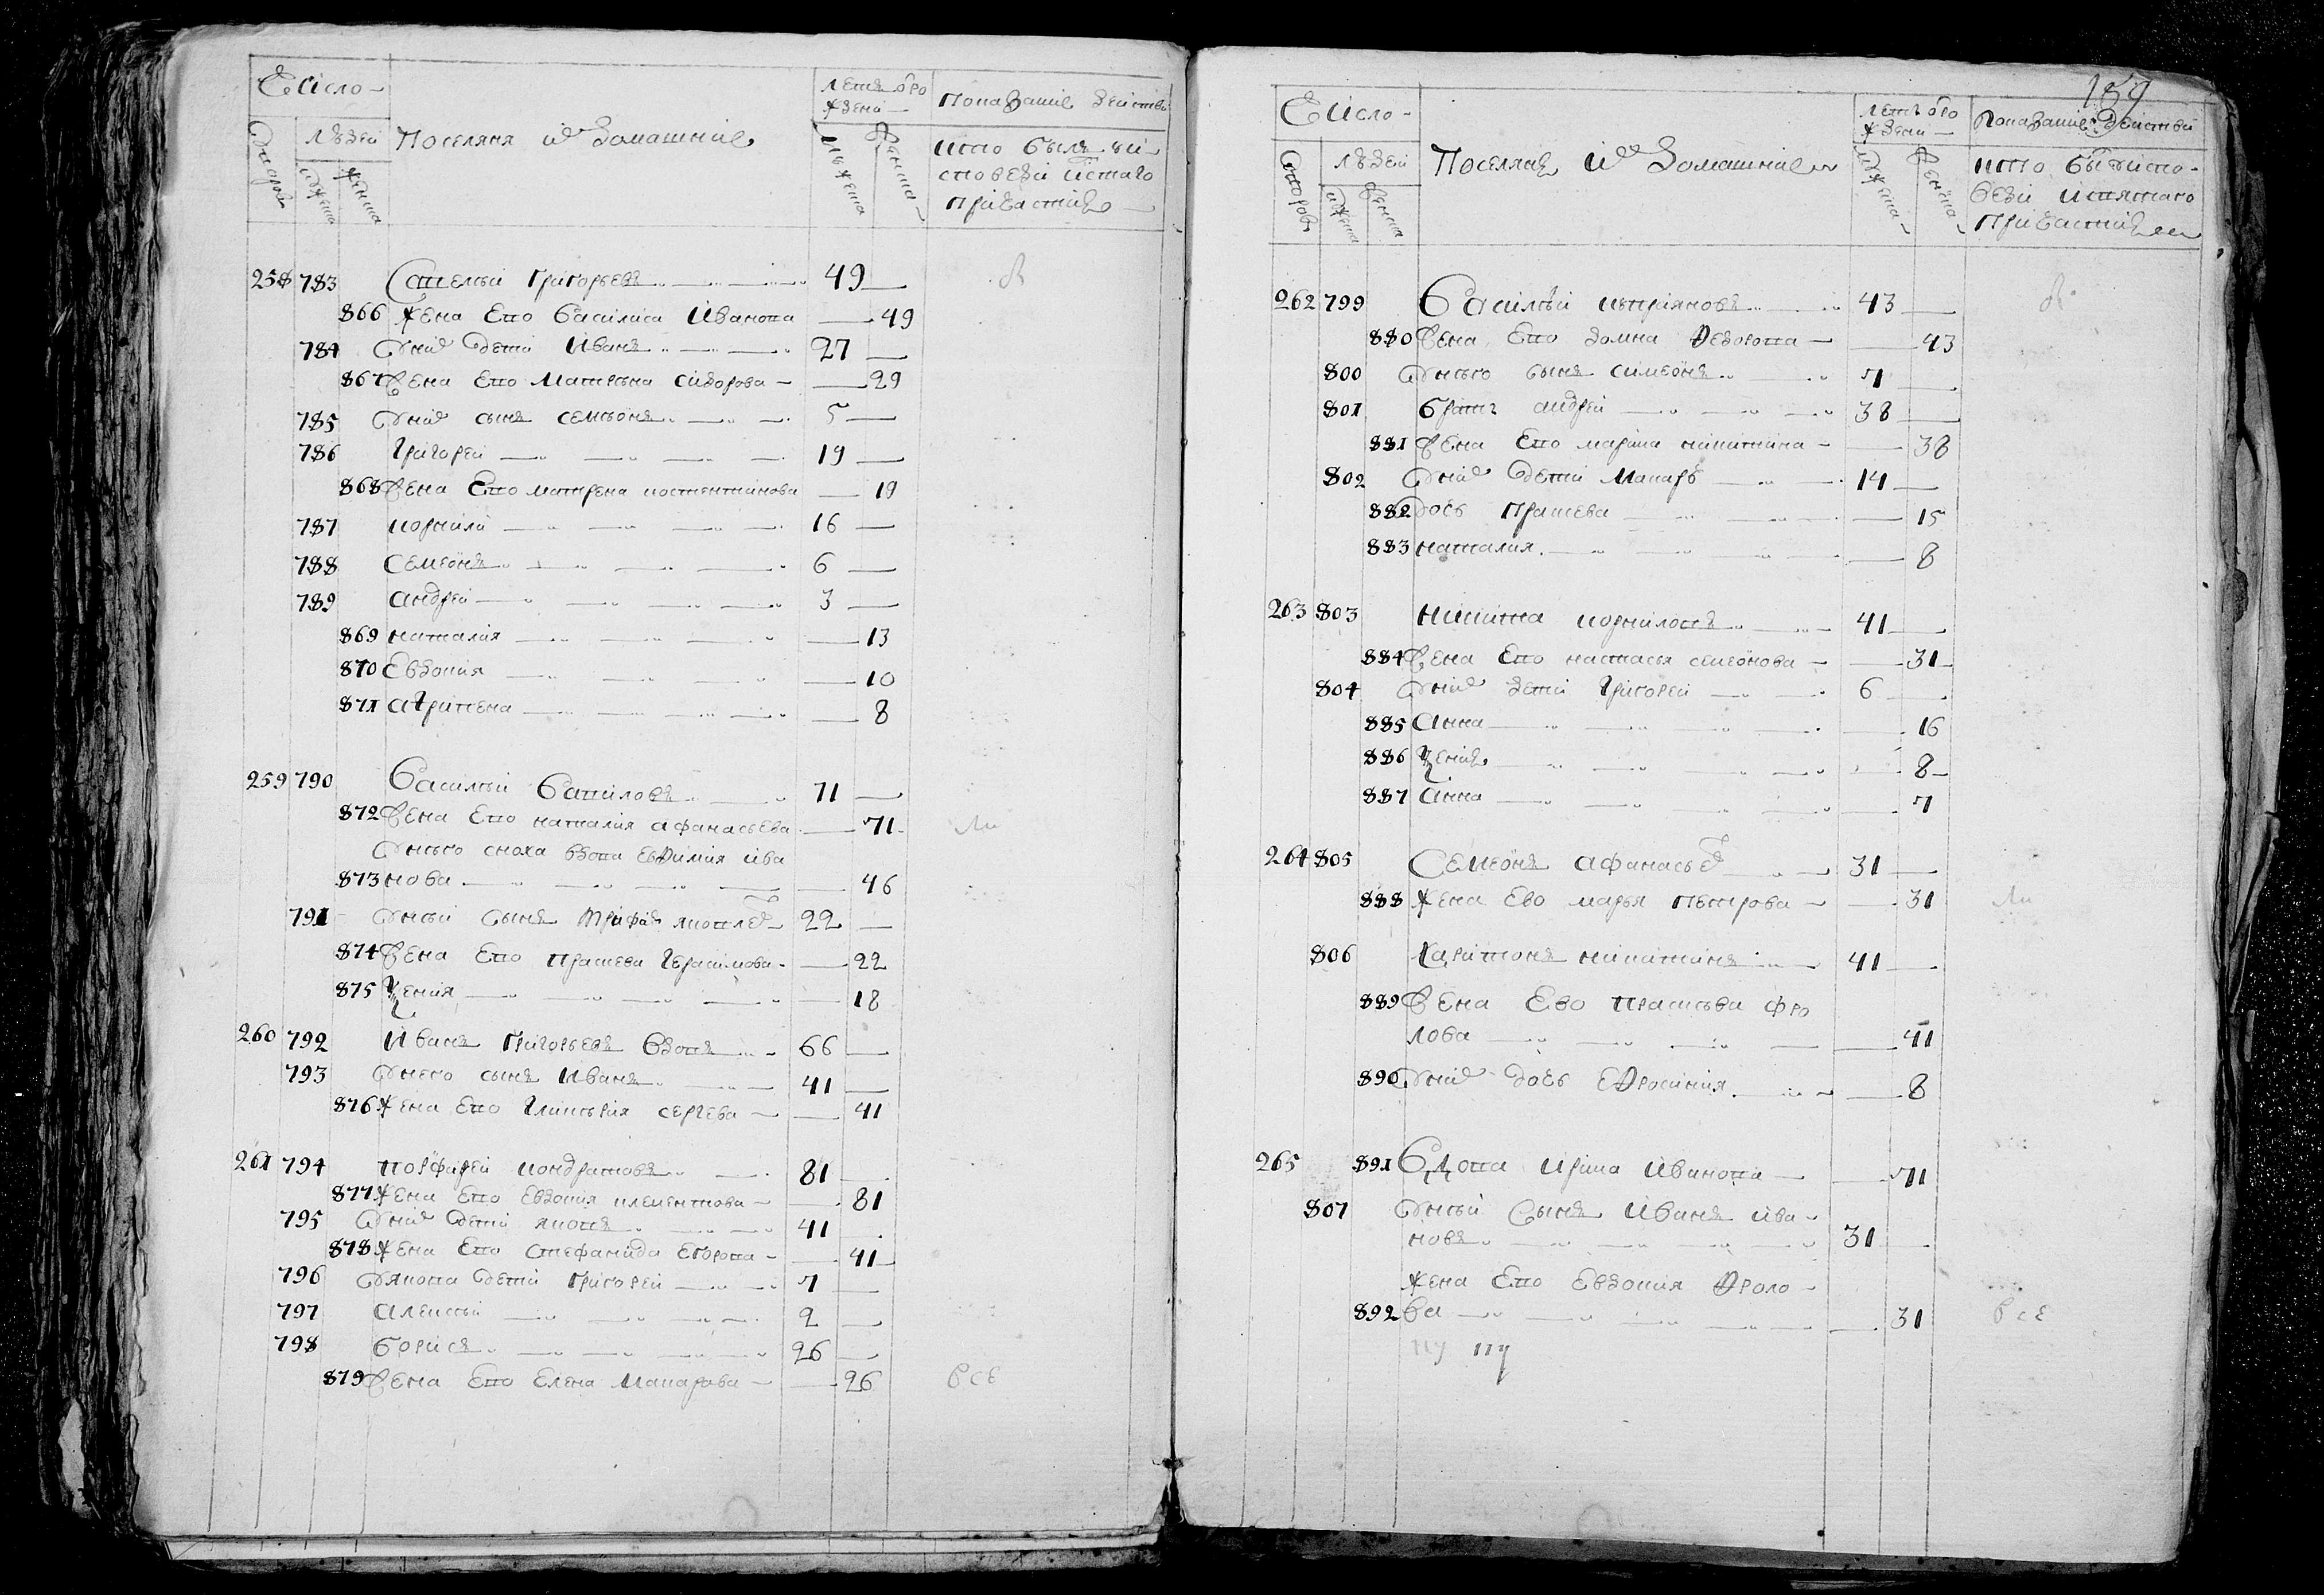 Число
Поселяня их домашние
Лет от рождени
Показание действи
Дворов
Людей
мужеска
женска
мужеска
женска
кто был у исповеди и стаго причастия
258 783 Савелий Григорьевъ 49
866 жена Ево Василиса Иванова 49
784 Оних дети Иванъ 27
867 жена Ево Матрена Сидорова 29
785 Оних сынъ семионъ 5
786 Григорей 19
868 жена Ево матрена костентинова 19
787 корнили 16
788 семеонъ 6
789 андрей 3
869 наталия 13
870 Евдокия 10
871 агрипена 8
259 790 Василий Василовъ 71
872 жена Ево наталия афанасьева 71
Оного сноха вдова евфимия ива
873 нова 46
791 Оной сынъ Трифон яковлев 22
874 жена Ево прасева Герасимова 22
875 Ксения 18
260 792 Иванъ Григорьевъ вдовъ 66
793 Онего сынъ Иванъ 41
876 жена Ево Гликерия сергева 41
261 794 порфирей кондратовъ 81
877 жена Ево Евдокия клементова 81
795 Оних дети яковъ 41
878 жена Ево Стефанида Егорова 41
796 Оякова дети Григорей 7
797 Алексей 2
798 борисъ 26
879 жена Ево Елена Макарова 26 все
159
Число
Поселяня их домашние
Лет от рождени
Показание действи
Дворов
Людей
мужеска
женска
мужеска
женска
кто бы у исповеди и святаго причастия
262 799 Василий киприяновъ 43
880 жена Ево домна Федорова 43
800 Онего сынъ симеонъ 7
801 братъ андрей 38
881 жена Ево марина никитина 38
802 Оних дети Макаръ 14
882 дочь Прасева 15
883 наталия 8
263 803 никита корниловъ 41
884 жена Ево настасья семеонова 31
804 Оних дети Григорей 6
885 Анна 16
886 Ксения 8
887 Анна 7
264 805 Семеонъ афанасьев 31
888 жена Ево марья Петрова 31
806 Харитонъ никитинъ 41
889 жена Ево прасковя фро
лова 41
890 Оних дочь ефросиния 8
265 891 Вдова Ирина Иванова 71
807 Оной Сынъ Иванъ ива
новъ 31
жена Ево Евдокия Фроло
892 ва 31 все